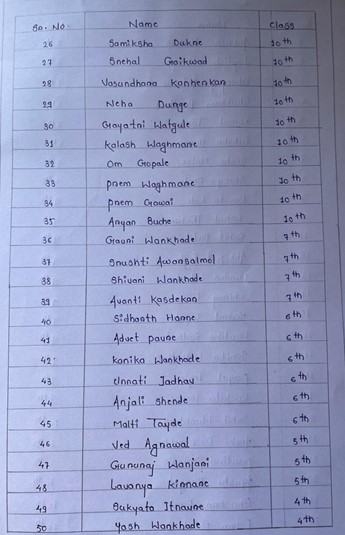 Sr. No. Name Class
26 Samiksha Dukne 10th
27 Snehal Gaikwad 10th
28 Vasundhana Kanhenkan 10th
29 Neha Dunge 10th
30 Gayatni Watgule 10th
31 Kalash Waghmane 10th
32 Om Gopale 10th
33 pnem Waghmane 10th
34 pnem Gawai 10th
35 Anyan Buche 10th
36 Gauni Wankhade 7th
37 Snushti Awansalmol 7th
38 Shivani Wankhade 7th
39 Avanti Kasdekan 7th
40 Sidhanth Hanne 6th
41 Advet paune 6th
42 Kanika Wankhode 6th
43 Unnati Jadhav 6th
44 Anjali Shende 6th
45 Malti Tayde 6th
46 Ved Agnawal 5th
47 Gununaj Wanjani 5th
48 Lavanya Kinnane 5th
49 Sukyata Itnaune 4th
50 Yash Wankhade 4th